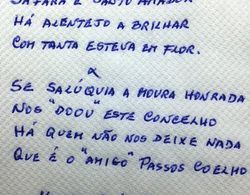 SAFARA E SANTO AMADOR
HÁ ALENTEJO A BRILHAR
COM TANTA ESTEVA EM FLOR.
SE SALÚQUIA A MOURA HONRADA
NOS "DOOU" ESTE CONCELHO
HÁ QUEM NÃO NOS DEIXE NADA
QUE É O "AMIGO" PASSOS COELHO